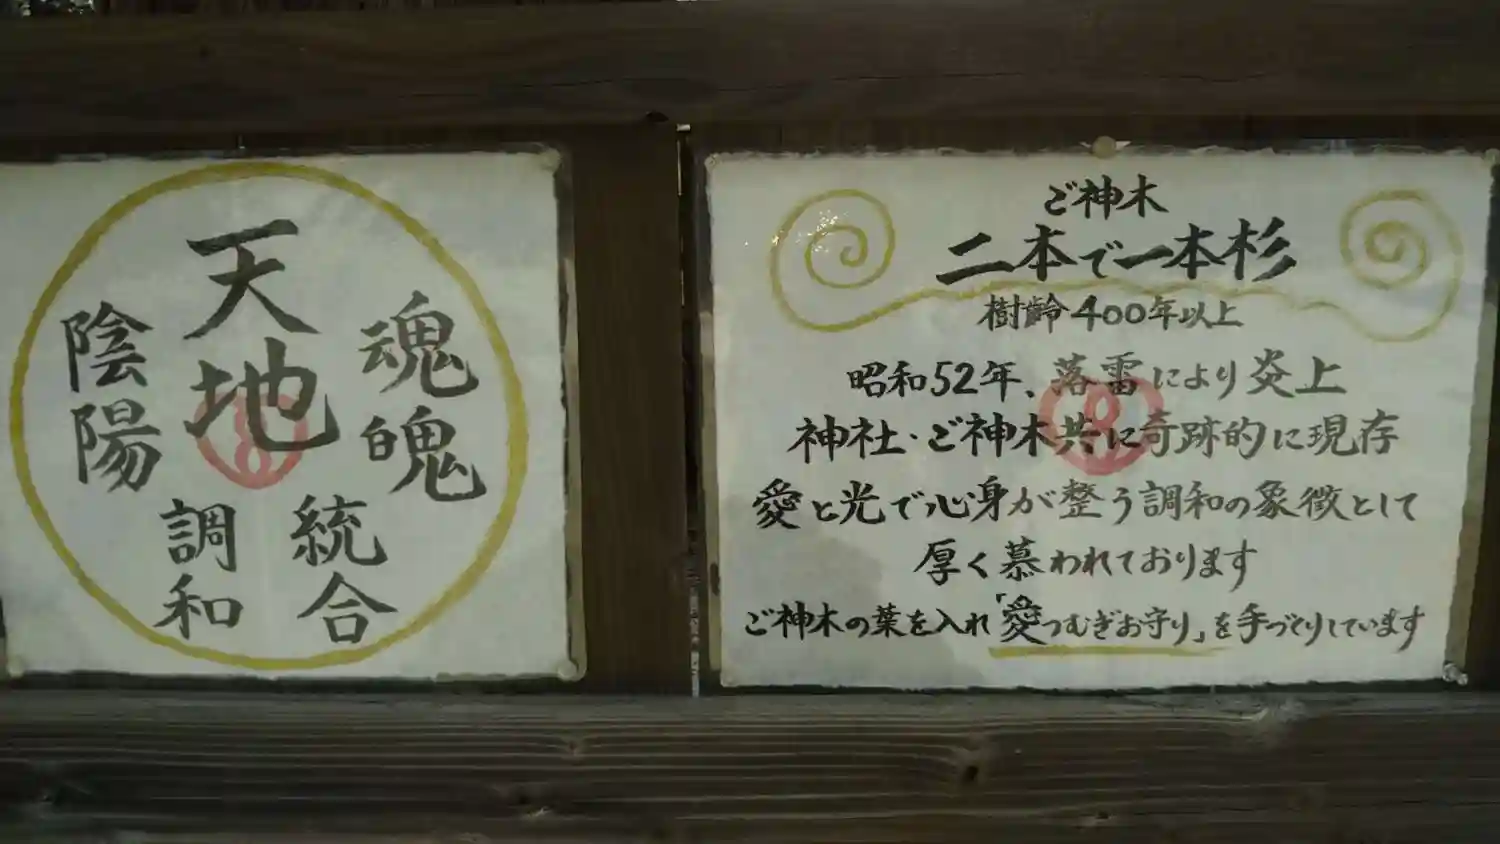 天地
陰陽
魂魄
調和
統合
ご神木
二本で一本杉
樹齢400年以上
昭和52年、落雷により炎上
神社・ご神木共に奇跡的に現存
愛と光で心身が整う調和の象徴として
厚く慕われております
ご神木の葉を入れ「愛つむぎお守り」を手づくりしています